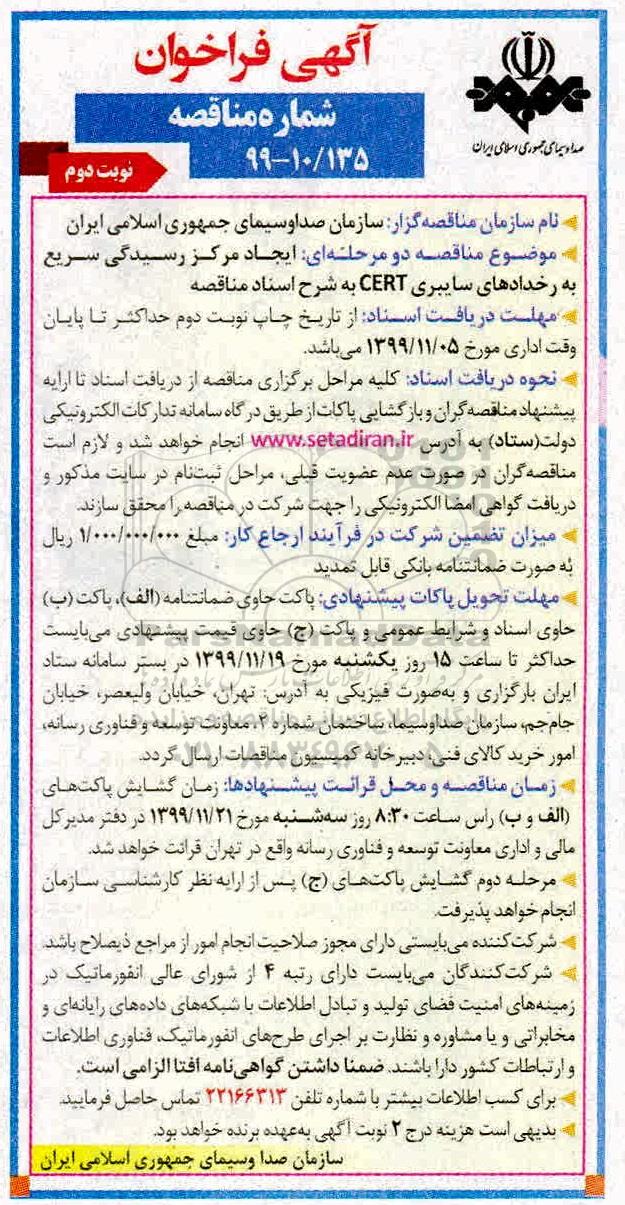 آگهی فراخوان
شماره مناقصه
۹۹-۱۰/۱۳۵
نوبت دوم
صدا و سیمای جمهوری اسلامی ایران
نام سازمان مناقصه‌گزار: سازمان صداوسیمای جمهوری اسلامی ایران
موضوع مناقصه دو مرحله‌ای: ایجاد مرکز رسیدگی سریع
به رخدادهای سایبری CERT به شرح اسناد مناقصه
مهلت دریافت اسناد: از تاریخ چاپ نوبت دوم حداکثر تا پایان
وقت اداری مورخ ۱۳۹۹/۱۱/۰۵ می‌باشد.
نحوه دریافت اسناد: کلیه مراحل برگزاری مناقصه از دریافت اسناد تا ارایه
پیشنهاد مناقصه‌گران و بازگشایی پاکات از طریق درگاه سامانه تدارکات الکترونیکی
دولت(ستاد) به آدرس www.setadiran.ir انجام خواهد شد و لازم است
مناقصه‌گران در صورت عدم عضویت قبلی، مراحل ثبت‌نام در سایت مذکور و
دریافت گواهی امضا الکترونیکی را جهت شرکت در مناقصه را محقق سازند.
میزان تضمین شرکت در فرآیند ارجاع کار: مبلغ ۱/۰۰۰/۰۰۰/۰۰۰ ریال
به صورت ضمانتنامه بانکی قابل تمدید
مهلت تحویل پاکات پیشنهادی: پاکت حاوی ضمانتنامه (الف)، پاکت (ب)
حاوی اسناد و شرایط عمومی و پاکت (ج) حاوی قیمت پیشنهادی می‌بایست
حداکثر تا ساعت ۱۵ روز یکشنبه مورخ ۱۳۹۹/۱۱/۱۹ در بستر سامانه ستاد
ایران بارگزاری و به‌صورت فیزیکی به آدرس: تهران، خیابان ولیعصر، خیابان
جام‌جم، سازمان صداوسیما، ساختمان شماره ۲، معاونت توسعه و فناوری رسانه،
امور خرید کالای فنی، دبیرخانه کمیسیون مناقصات ارسال گردد.
زمان مناقصه و محل قرائت پیشنهادها: زمان گشایش پاکت‌های
(الف و ب) راس ساعت ۸:۳۰ روز سه‌شنبه مورخ ۱۳۹۹/۱۱/۲۱ در دفتر مدیرکل
مالی و اداری معاونت توسعه و فناوری رسانه واقع در تهران قرائت خواهد شد.
مرحله دوم گشایش پاکت‌های (ج) پس از ارایه نظر کارشناسی سازمان
انجام خواهد پذیرفت.
شرکت‌کننده می‌بایستی دارای مجوز صلاحیت انجام امور از مراجع ذیصلاح باشد.
شرکت‌کنندگان می‌بایست دارای رتبه ۴ از شورای عالی انفورماتیک در
زمینه‌های امنیت فضای تولید و تبادل اطلاعات با شبکه‌های داده‌های رایانه‌ای و
مخابراتی و یا مشاوره و نظارت بر اجرای طرح‌های انفورماتیک، فناوری اطلاعات
و ارتباطات کشور دارا باشند. ضمنا داشتن گواهی‌نامه افتا الزامی است.
برای کسب اطلاعات بیشتر با شماره تلفن ۲۲۱۶۶۳۱۳ تماس حاصل فرمایید.
بدیهی است هزینه درج ۲ نوبت آگهی به‌عهده برنده خواهد بود.
سازمان صدا وسیمای جمهوری اسلامی ایران